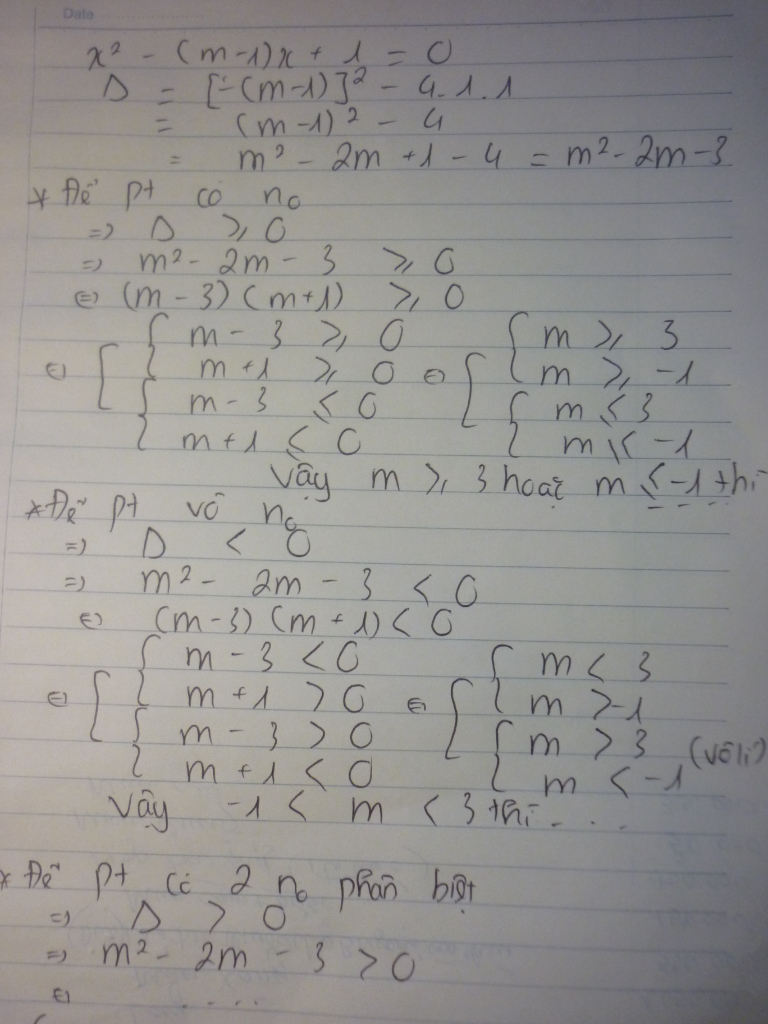 Date
x² - (m-1)x + 1 = 0
Δ = [-(m-1)]² - 4.1.1
= (m-1)² - 4
= m² - 2m + 1 - 4 = m² - 2m - 3
* Để pt có n₀
=> Δ ⩾ 0
=> m² - 2m - 3 ⩾ 0
⇔ (m - 3)(m+1) ⩾ 0
⇔ [ { m - 3 ⩾ 0 { m ⩾ 3
m + 1 ⩾ 0 ⇔ [ m ⩾ -1
{ m - 3 ⩽ 0 { m ⩽ 3
m + 1 ⩽ 0 m ⩽ -1
Vậy m ⩾ 3 hoặc m ⩽ -1 thì ....
* Để pt vô n₀
=> Δ < 0
=> m² - 2m - 3 < 0
⇔ (m-3)(m+1) < 0
⇔ [ { m - 3 < 0 { m < 3
m + 1 > 0 ⇔ [ m > -1
{ m - 3 > 0 { m > 3 (vô lí)
m + 1 < 0 m < -1
Vậy -1 < m < 3 thì ....
* Để pt có 2 n₀ phân biệt
=> Δ > 0
=> m² - 2m - 3 > 0
⇔ .....